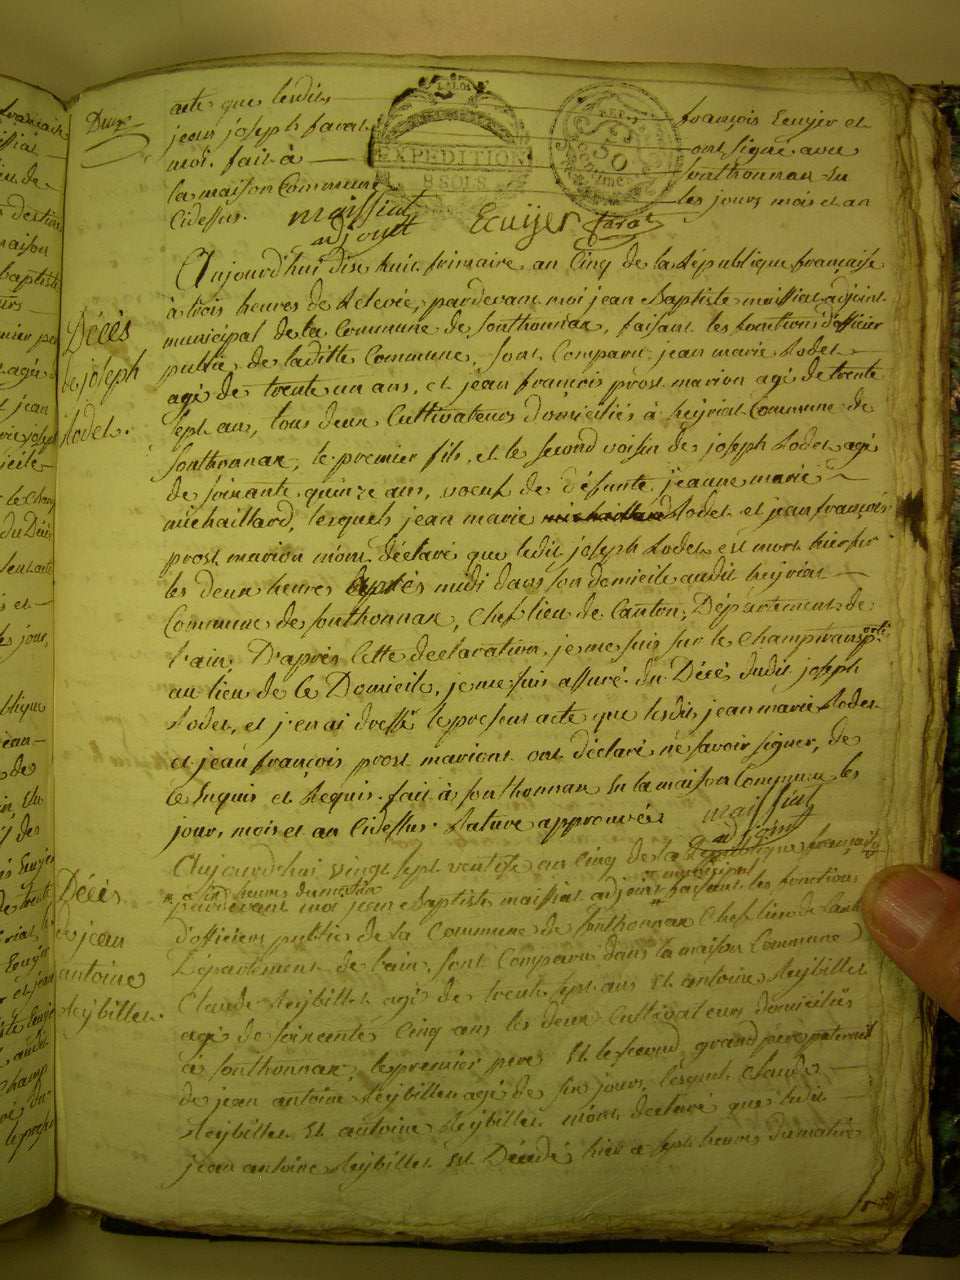 Deux
acte que lesdits françois Ecuyer et
jean joseph favat ont signé avec
moi. fait à Sonthonnax en
la maison Commune les jours mois et an
Cidessus. maissiat Ecuyer favat
adjoint
LA LOI
EXPEDITION
8 SOLS
REP. FRA.
50
Centime
Aujourd'hui dix huit frimaire an Cinq de la République française
à trois heures de Relevée, pardevant moi jean Baptiste maissiat adjoint
municipal de la Commune de Sonthonnax, faisant les fonctions d'officier
public de laditte Commune, sont Comparu jean marie Rodet
agé de trente un ans, et jean françois prost marion agé de trente
sept ans, tous deux Cultivateurs domiciliés à heyriat Commune de
Sonthonnax, le premier fils, et le second voisin de joseph Rodet agé
de soixante quinze ans, voeuf de défunte jeanne marie
michaillard, lesquels jean marie Rodet et jean françois
prost marion m'ont déclaré que ledit joseph Rodet est mort hier sur
les deux heures après midi dans son domicile audit heyriat
Commune de Sonthonnax, Chef lieu de Canton, Département de
l'ain, D'après Cette déclaration, je me suis sur le Champ transporté
au lieu de Ce Domicile, je me suis assuré du Décés dudit joseph
Rodet, et j'en ai dressé le present acte que lesdits jean marie Rodet
et jean françois prost mariont ont déclaré ne savoir signer, de
Ce Enquis et Requis. fait à Sonthonnax en la maison Commune les
jour, mois et an Cidessus. Rature approuvée maissiat
adjoint
Décès
de joseph
Rodet.
Aujourdhui vingt sept ventose an Cinq de la République française
a six heures du matin municipal
pardevant moi jean Baptiste maissiat adjoint faisant les fonctions
d'officier public de la Commune de Sonthonnax Chef lieu de Canton
Département de l'ain, sont Comparu dans la maison Commune
Claude Reybillet agé de trente sept ans Et antoine Reybillet
agé de soixente Cinq ans les deux Cultivateurs domiciliés
à Sonthonnax, le premier pere Et le second grand pere paternel
de jean antoine Reybillet agé de six jours, lesquels Claude
Reybillet Et antoine Reybillet m'ont declaré que ledit
jean antoine Reybillet Est Décédé hier a sept heures du matin
Décès
de jean
antoine
Reybillet.